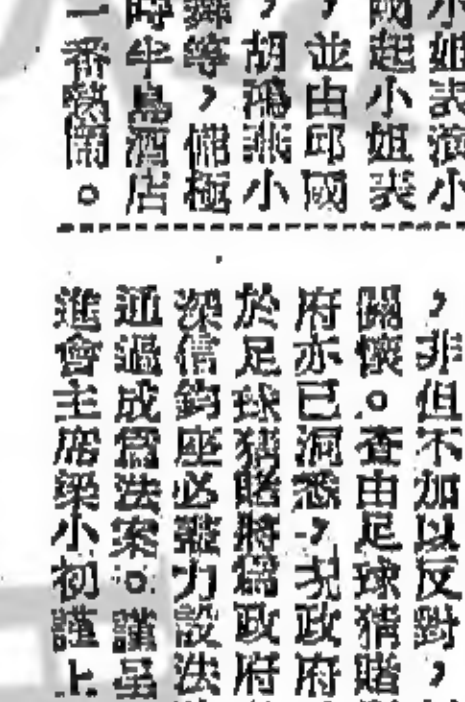 小姐表演小
國起小姐表
，並由邱國
，胡鴻燕小
舞等，備極
時半島酒店
一番熱鬧。
，非但不加以反對，
關懷。查由足球猜賭
府亦已洞悉，現政府
於足球猜賭將爲政府
深信鈞座必竭力設法
通過成爲法案。謹呈
進會主席梁小初謹上